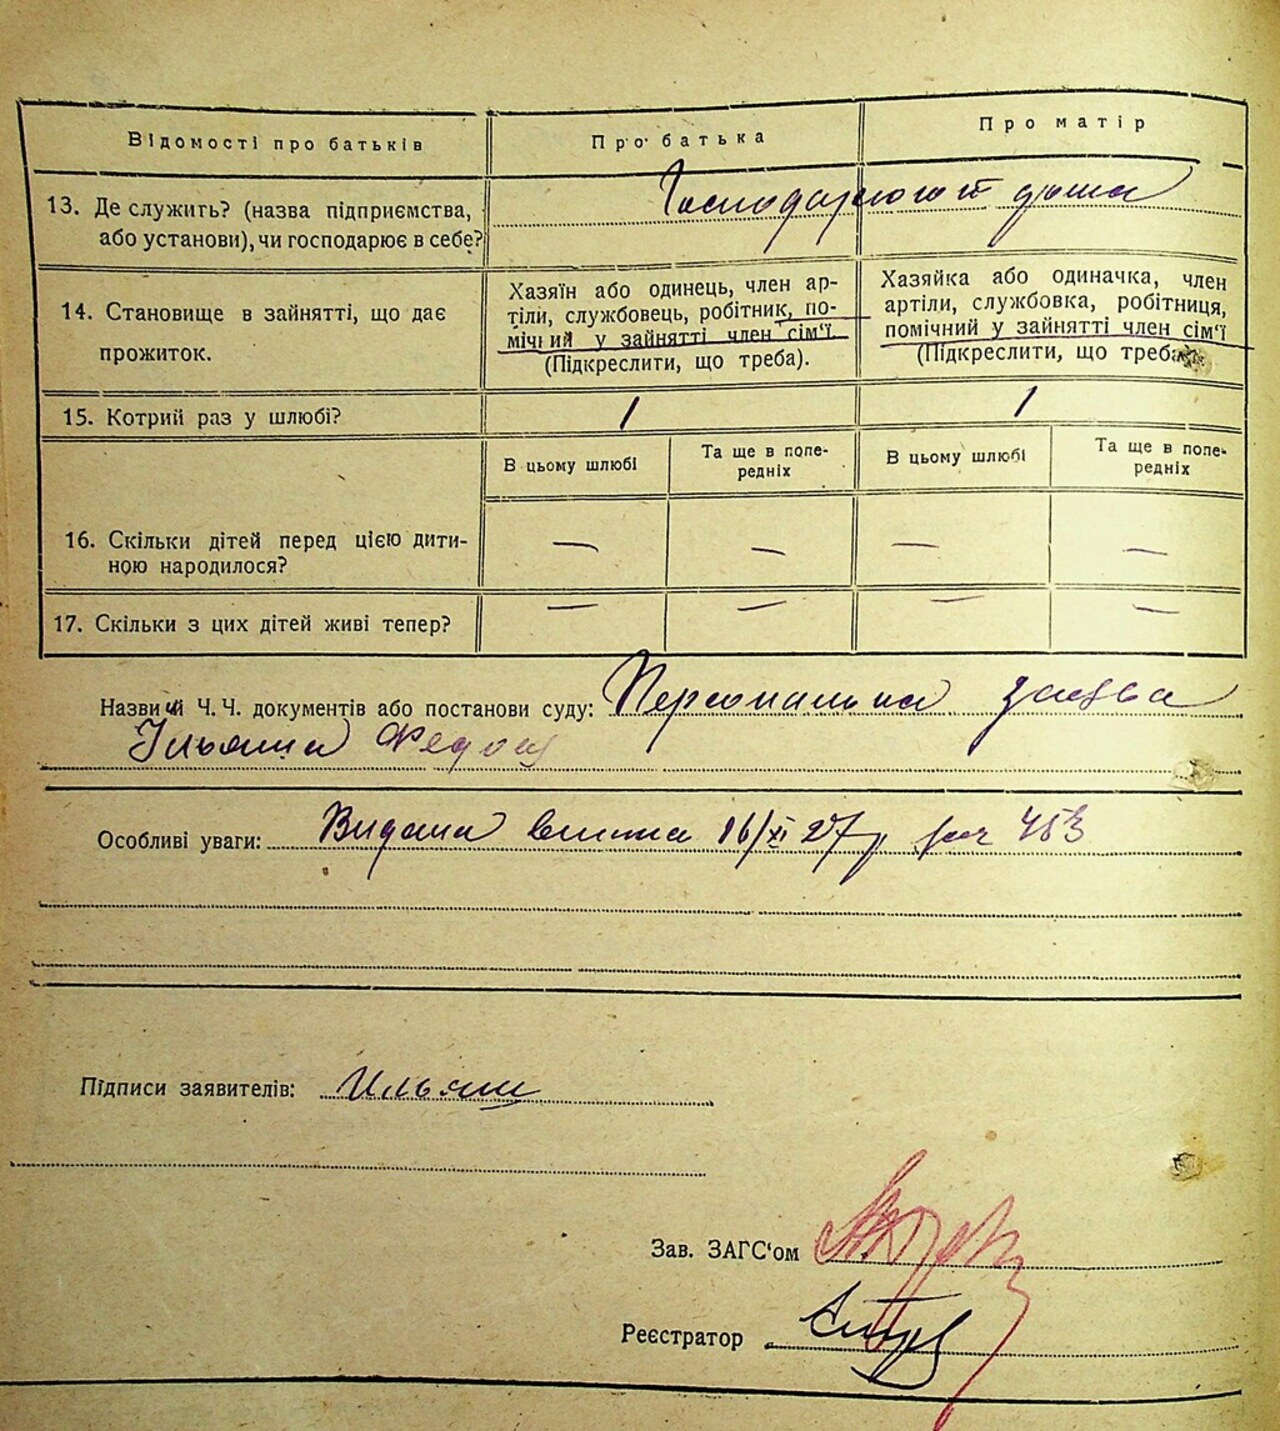 Відомості про батьків
Про батька
Про матір
13. Де служить? (назва підприємства,
або установи), чи господарює в себе?
14. Становище в зайнятті, що дає
прожиток.
Хазяїн або одинець, член ар-
тілі, службовець, робітник, по-
мічний у зайнятті член сім'ї.
(Підкреслити, що треба).
Хазяйка або одиначка, член
артілі, службовка, робітниця,
помічний у зайнятті член сім'ї
(Підкреслити, що треба
15. Котрий раз у шлюбі?
1
1
В цьому шлюбі
Та ще в попе-
редніх
В цьому шлюбі
Та ще в попе-
редніх
16. Скільки дітей перед цією дити-
ною народилося?
— — — —
17. Скільки з цих дітей живі тепер?
— — — —
Назви й Ч.Ч. документів або постанови суду: Персональна заява
Ільяша
Особливі уваги: Видана 16/XI 27 р 453
Підписи заявителів: Ильяш
Зав. ЗАГС'ом
Реєстратор